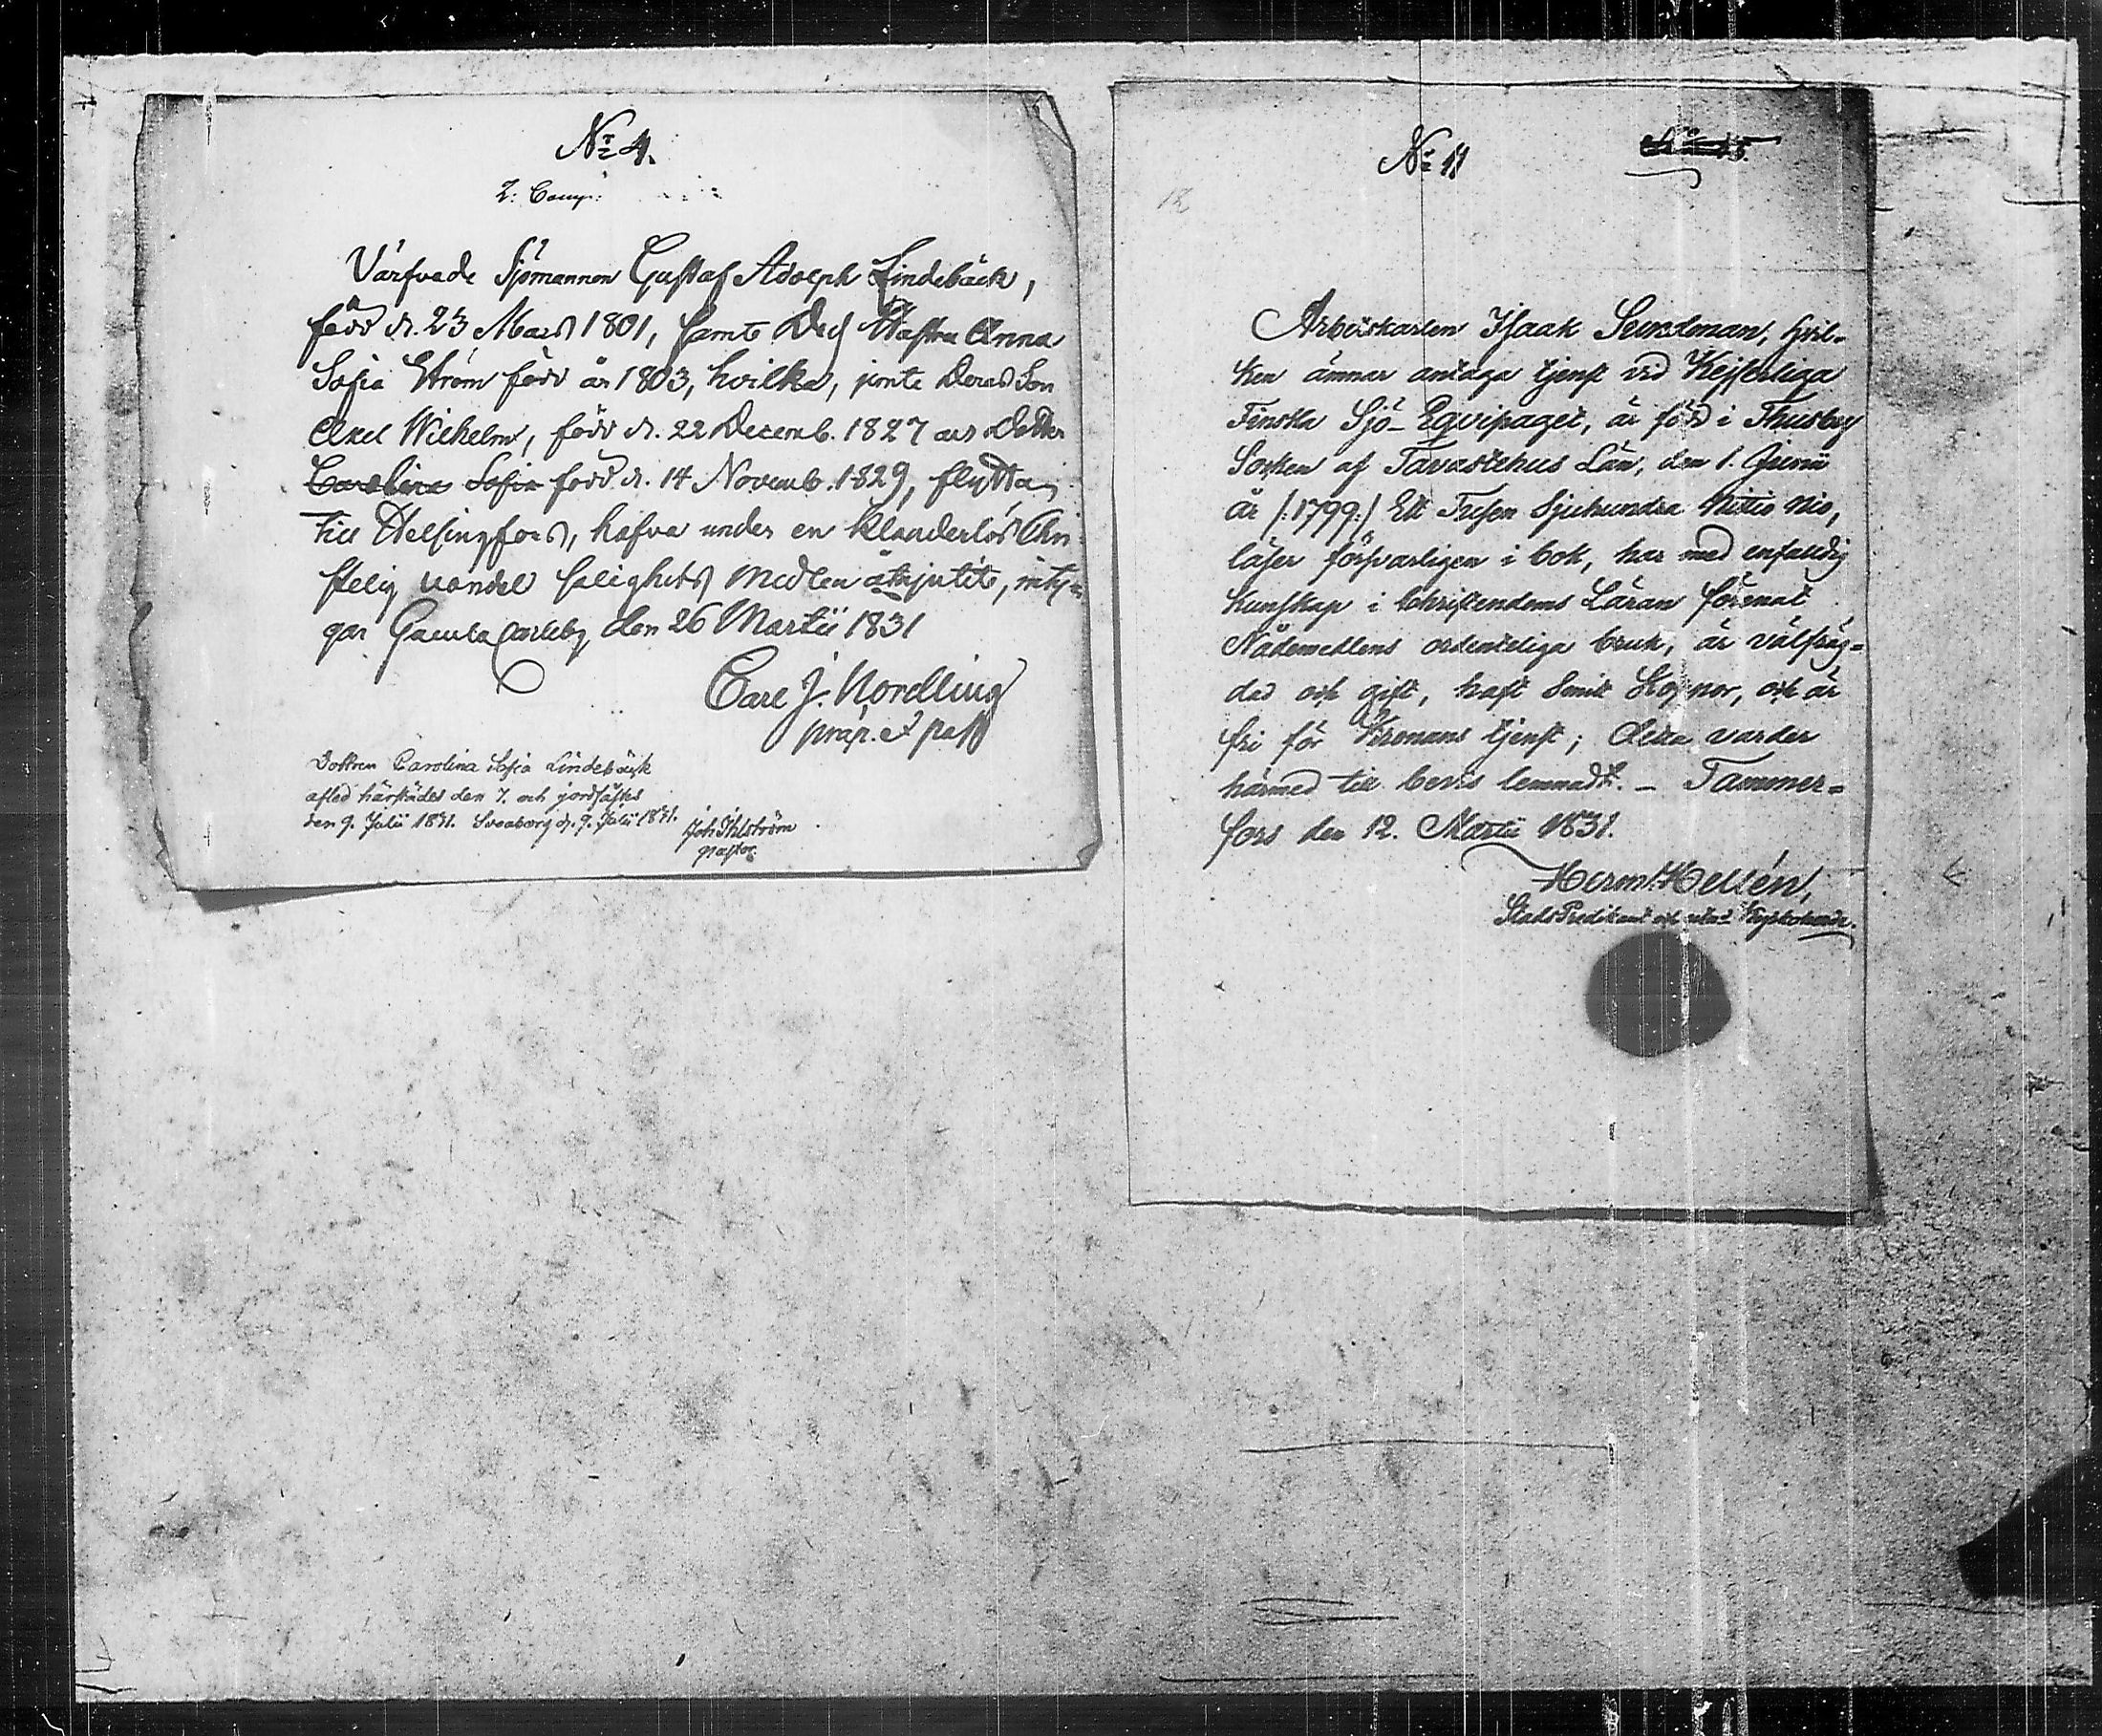 No 4.
2: Comp:
Värfvade Sjömannen Gustaf Adolph Lindebäck,
född d. 23 Mars 1801, samt Dess Hustru Anna
Sofia Ström född år 1803, hvilka, jemte deras Son
Axel Wilhelm, född d. 22 Decemb. 1827 och dotter
Carolina Sofia född d. 14 Novemb. 1829, flytta
till Helsingfors, hafva under en klanderlös Chri-
stelig vandel salighets medlen åtnjutit, inty-
gar Gamla Carleby den 26 Martii 1831
Carl J. Nordling
præp. et past
Dottren Carolina Sofia Lindebäck
afled härstädes den 7. och jordfästes
den 9. Julii 1831. Sveaborg d. 9. Julii 1831.
Joh Ihlström
pastor.
No 11
12
Arbetskarlen Isaak Sundman, hvil-
ken ämnar antaga tjenst vid Kejserliga
Finska Sjö-Eqvipaget, är född i Thusby
Socken af Tavastehus Län, den 1. Junii
år /:1799:/ Ett Tusen Sjuhundra Nitio Nio,
läser försvarligen i bok, har med enfaldig
kunskap i Christendoms Läran förenat
Nådemedlens ordenteliga bruk, är välfräg-
dad och gift, haft Smitt Koppor, och är
fri för Kronans tjenst; detta varder
härmed till bevis lemnadt. - Tammer-
fors den 12. Martii 1831.
Herm. Hellén,
Stads Predikant och Kyrkoherde.